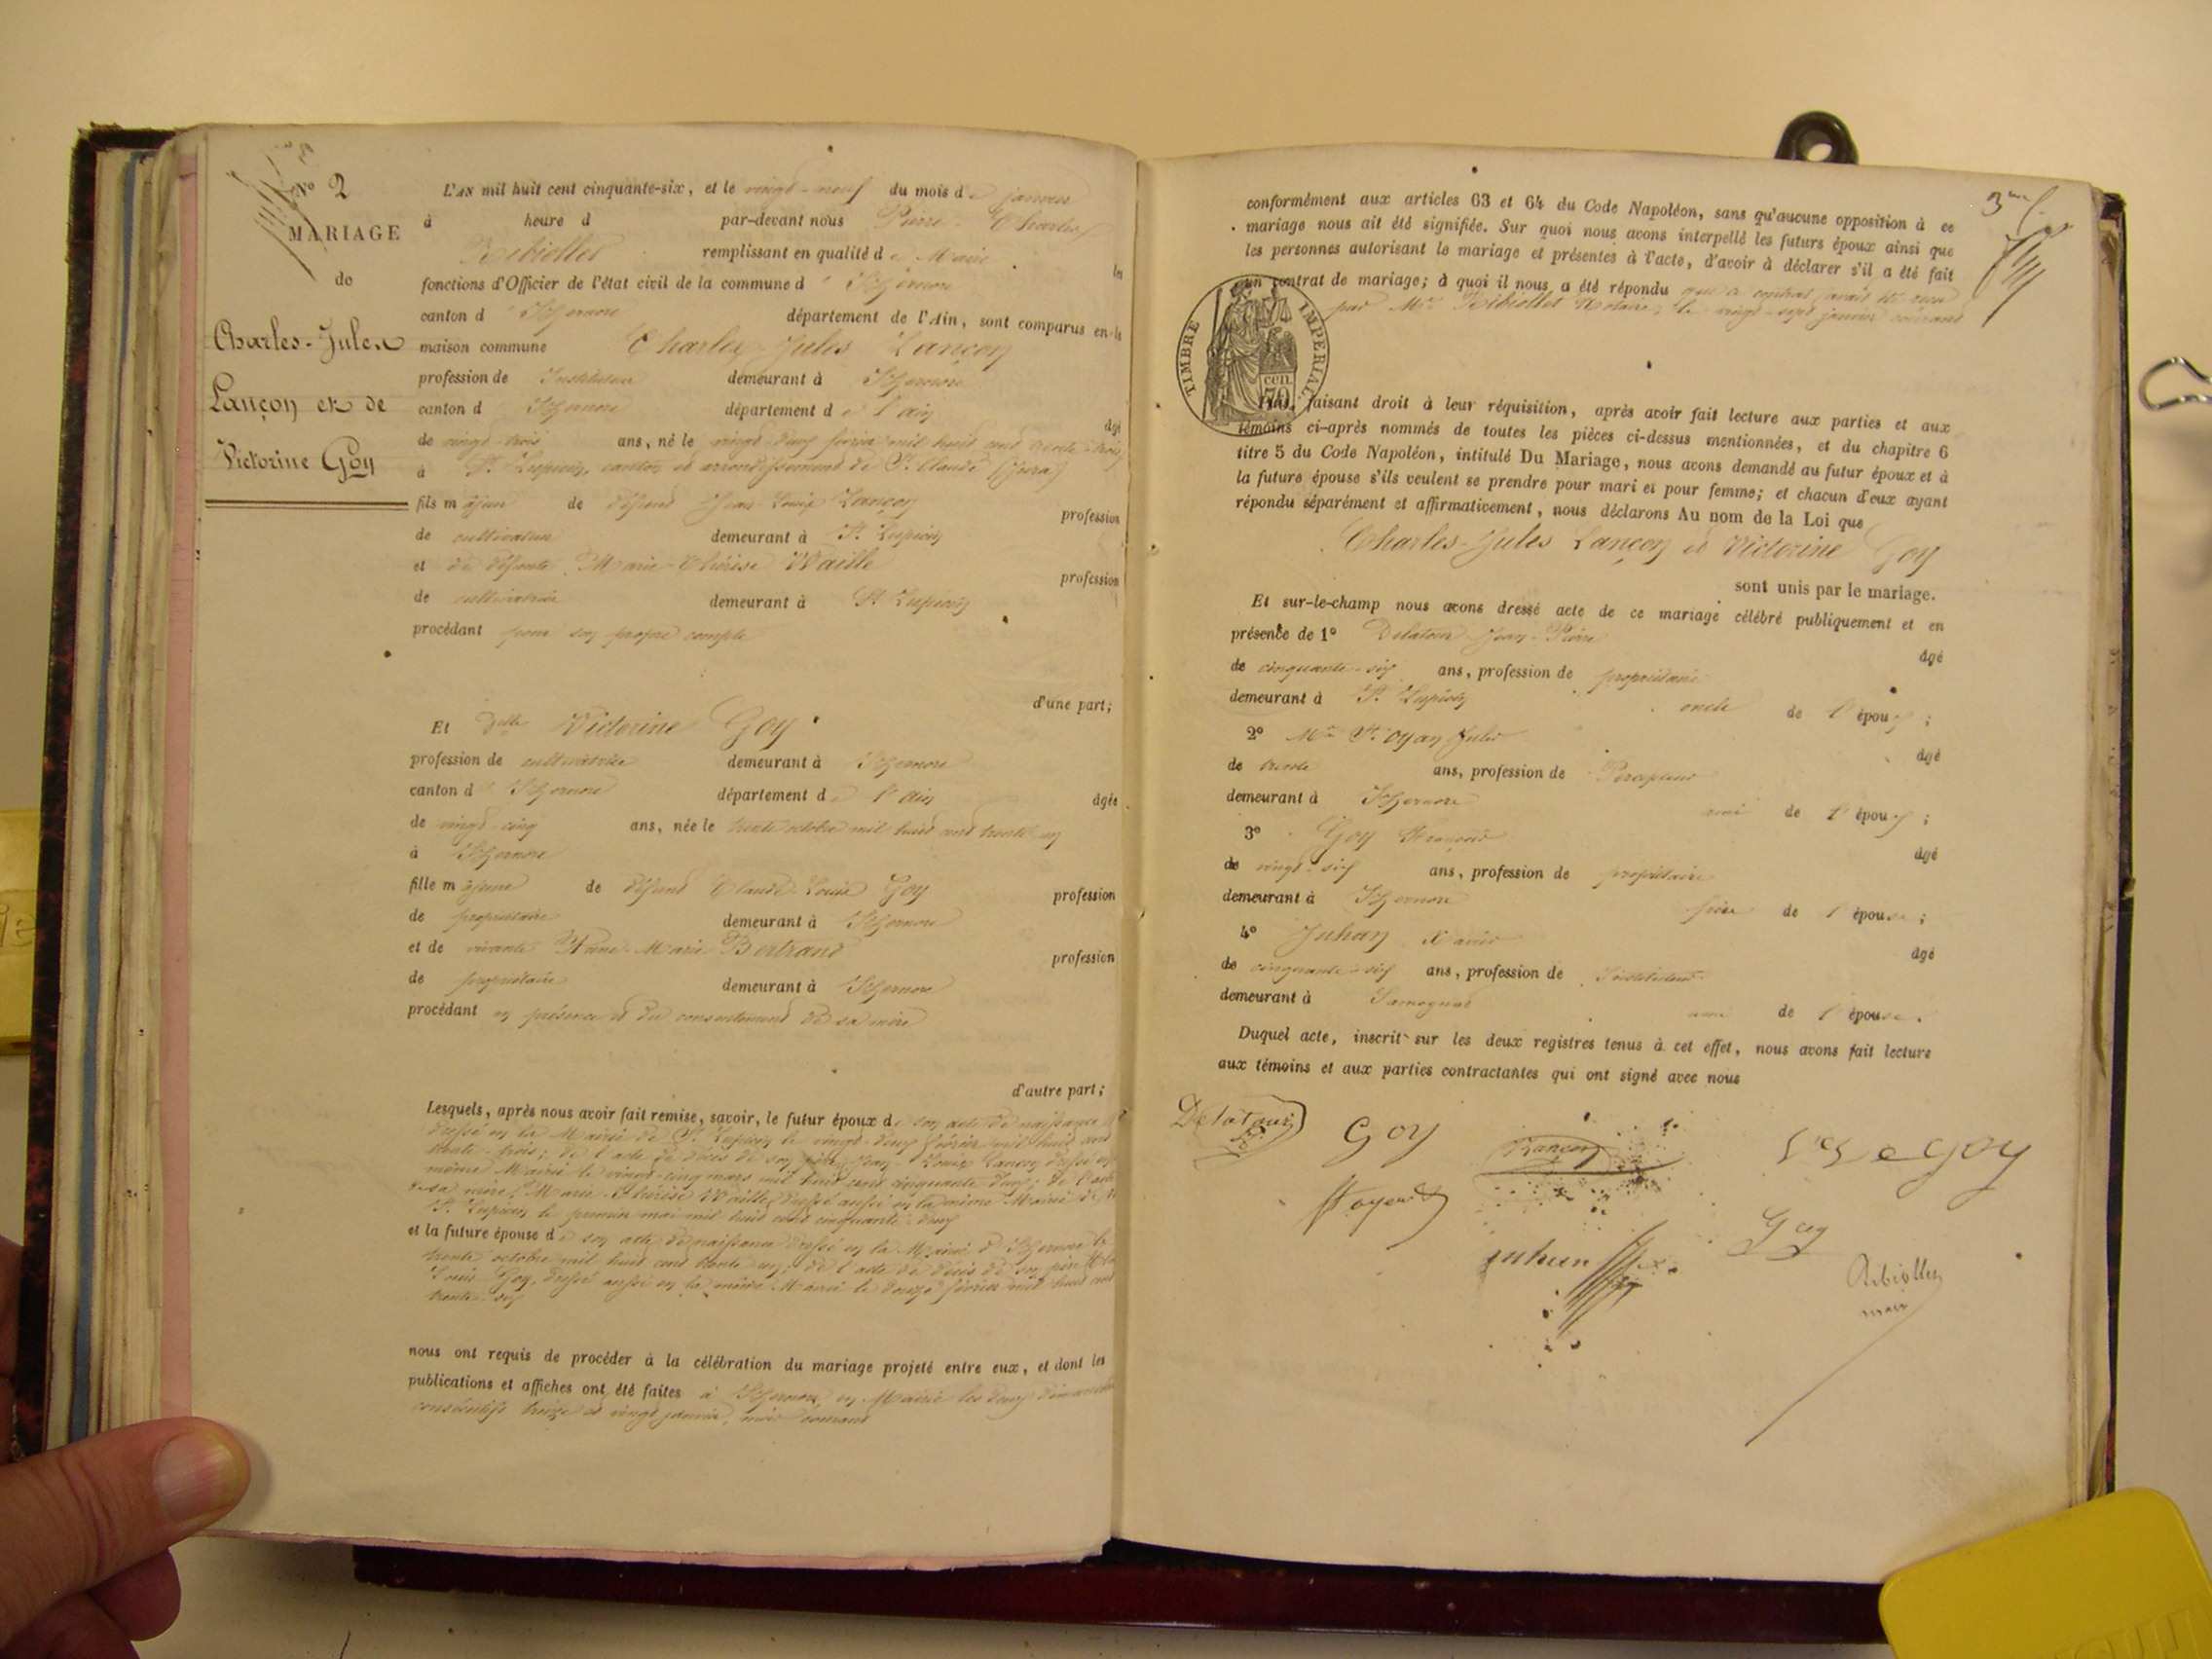 Nº 2
MARIAGE
de
Charles-Jules
Lançon et de
Victorine Goy
L'AN mil huit cent cinquante-six, et le vingt-neuf du mois de janvier
à heure d par-devant nous Pierre Charles
Ribiollet remplissant en qualité de Maire les
fonctions d'Officier de l'état civil de la commune d'Izernore
canton d'Izernore département de l'Ain, sont comparus en la
maison commune Charles Jules Lançon
profession de Instituteur demeurant à Izernore
canton d'Izernore département de l'ain âgé
de vingt-trois ans, né le vingt-deux février mil huit cent trente-trois
à St. Lupicin, canton et arrondissement de St. Claude (Jura)
fils majeur de défunt Jean-Louis Lançon profession
de cultivateur demeurant à St. Lupicin
et de défunte Marie-Thérèse Waille profession
de cultivatrice demeurant à St Lupicin
procédant pour son propre compte
d'une part;
Et Delle Victorine Goy
profession de cultivatrice demeurant à Izernore
canton d'Izernore département de l'ain âgée
de vingt-cinq ans, née le trente octobre mil huit cent trente un
à Izernore
fille majeure de défunt Claude-Louis Goy profession
de propriétaire demeurant à Izernore
et de vivante Anne-Marie Bertrand profession
de propriétaire demeurant à Izernore
procédant en présence et du consentement de sa mère
d'autre part;
Lesquels, après nous avoir fait remise, savoir, le futur époux de son acte de naissance
dressé en la Mairie de St. Lupicin le vingt-deux février mil huit cent
trente-trois; de l'acte de décès de son père Jean-Louis Lançon dressé en
même Mairie le vingt-cinq mars mil huit cent cinquante-deux; de l'acte
de sa mère Marie-Thérèse Waille, dressé aussi en la même Mairie de
St. Lupicin le premier mai mil huit cent cinquante-deux
et la future épouse de son acte de naissance dressé en la Mairie d'Izernore le
trente octobre mil huit cent trente un; de l'acte de décès de son père
Louis Goy, dressé aussi en la même Mairie le douze février mil huit cent
trente-six
nous ont requis de procéder à la célébration du mariage projeté entre eux, et dont les
publications et affiches ont été faites à Izernore, en Mairie les deux dimanches
consécutifs treize et vingt janvier, mois courant
3me
conformément aux articles 63 et 64 du Code Napoléon, sans qu'aucune opposition à ce
mariage nous ait été signifiée. Sur quoi nous avons interpellé les futurs époux ainsi que
les personnes autorisant le mariage et présentes à l'acte, d'avoir à déclarer s'il a été fait
un contrat de mariage; à quoi il nous a été répondu que ce contrat avait été reçu
par Me Ribiollet Notaire, le vingt-sept janvier courant
TIMBRE IMPERIAL
70 cen
faisant droit à leur réquisition, après avoir fait lecture aux parties et aux
témoins ci-après nommés de toutes les pièces ci-dessus mentionnées, et du chapitre 6
titre 5 du Code Napoléon, intitulé Du Mariage, nous avons demandé au futur époux et à
la future épouse s'ils veulent se prendre pour mari et pour femme; et chacun d'eux ayant
répondu séparément et affirmativement, nous déclarons Au nom de la Loi que
Charles-Jules Lançon et Victorine Goy
sont unis par le mariage.
Et sur-le-champ nous avons dressé acte de ce mariage célébré publiquement et en
présence de 1º Delatour Jean-Pierre âgé
de cinquante-six ans, profession de propriétaire
demeurant à St. Lupicin oncle de l'époux;
2º Mr St. Oyan Jules âgé
de trente ans, profession de Percepteur
demeurant à Izernore ami de l'époux;
3º Goy François âgé
de vingt-six ans, profession de propriétaire
demeurant à Izernore frère de l'épouse;
4º Juhan Xavier âgé
de cinquante-six ans, profession de Instituteur
demeurant à Samognat ami de l'épouse.
Duquel acte, inscrit sur les deux registres tenus à cet effet, nous avons fait lecture
aux témoins et aux parties contractantes qui ont signé avec nous
Delatour Goy Lançon Goy
Juhan Goy
Ribiollet
maire